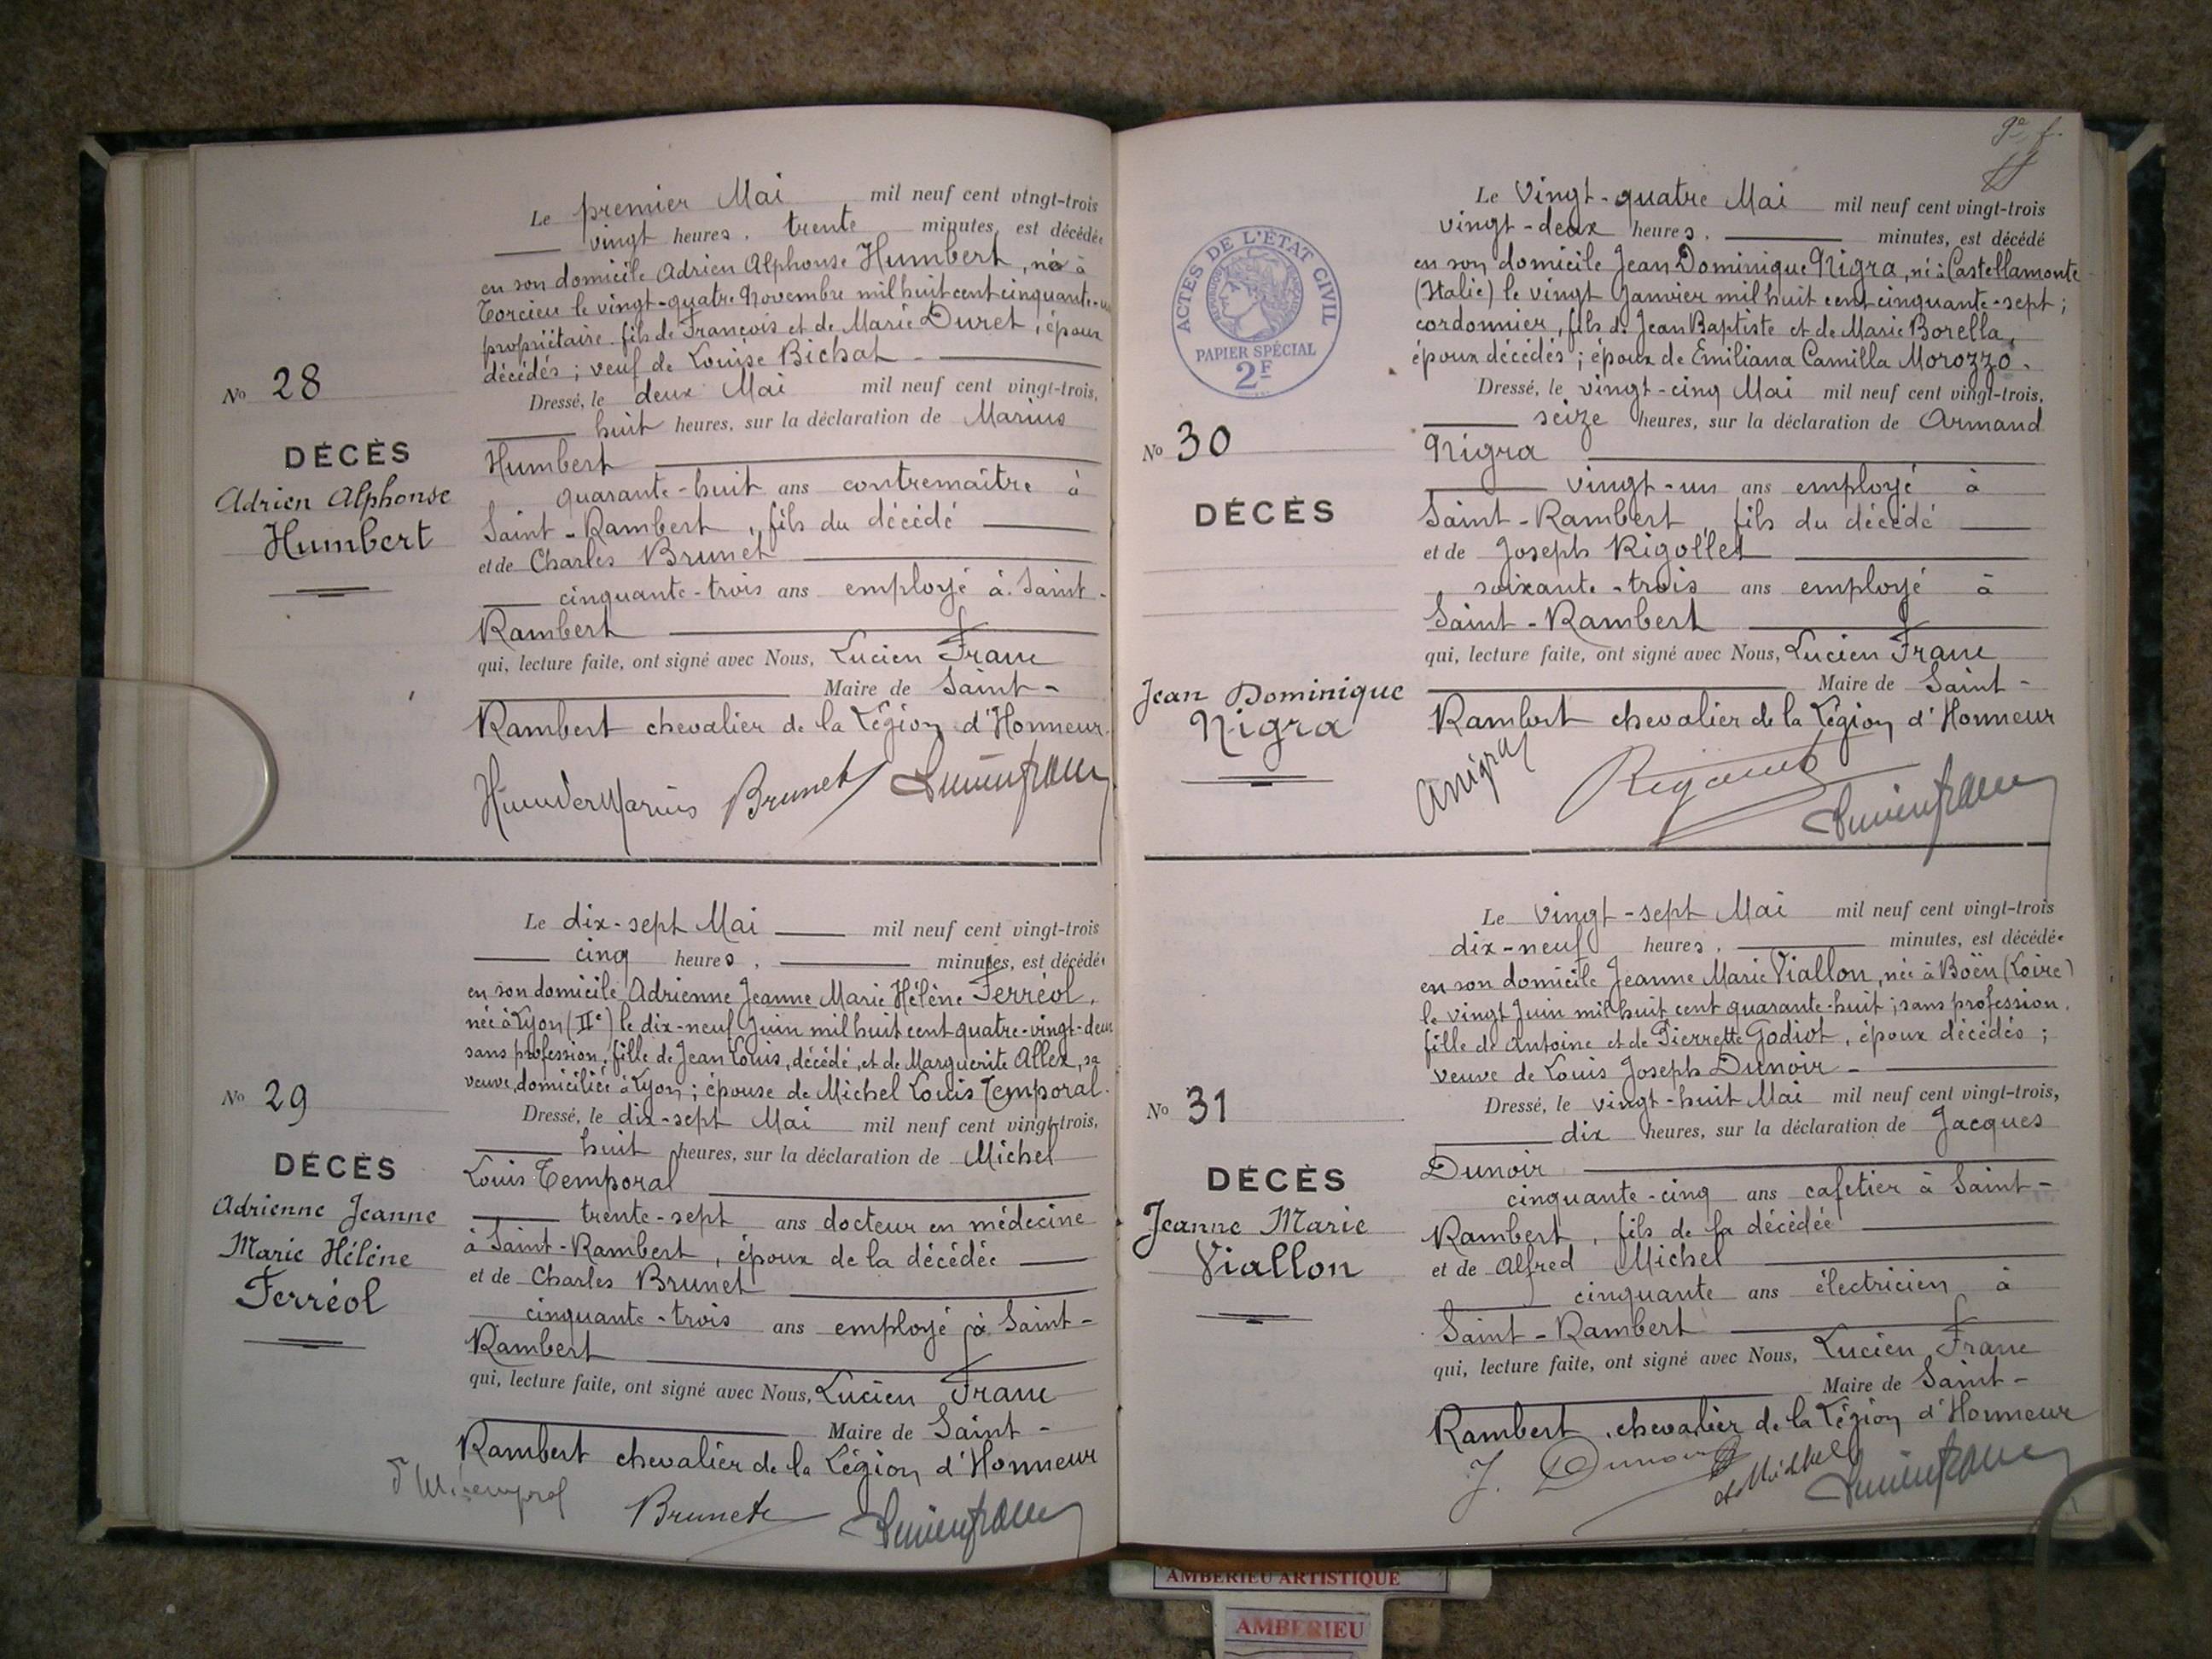 Le premier Mai mil neuf cent vingt-trois
vingt heures, trente minutes, est décédé
en son domicile Adrien Alphonse Humbert, né à
Torcieu le vingt-quatre Novembre mil huit cent cinquante-un
propriétaire, fils de François et de Marie Duret, époux
décédés ; veuf de Louise Bichat.
No 28
DÉCÈS
Adrien Alphonse
Humbert
Dressé, le deux Mai mil neuf cent vingt-trois,
huit heures, sur la déclaration de Marius
Humbert
quarante-huit ans contremaître à
Saint-Rambert, fils du décédé
et de Charles Brunet
cinquante-trois ans employé à Saint-
Rambert
qui, lecture faite, ont signé avec Nous, Lucien Franc
Maire de Saint-
Rambert chevalier de la Légion d'Honneur.
Brunet
Le dix-sept Mai mil neuf cent vingt-trois
cinq heures, minutes, est décédée
en son domicile Adrienne Jeanne Marie Hélène Ferréol,
née à Lyon (IIe) le dix-neuf Juin mil huit cent quatre-vingt-deux
sans profession, fille de Jean Louis, décédé, et de Marguerite Allex, sa
veuve, domiciliée à Lyon ; épouse de Michel Louis Temporal.
No 29
DÉCÈS
Adrienne Jeanne
Marie Hélène
Ferréol
Dressé, le dix-sept Mai mil neuf cent vingt-trois,
huit heures, sur la déclaration de Michel
Louis Temporal
trente-sept ans docteur en médecine
à Saint-Rambert, époux de la décédée
et de Charles Brunet
cinquante-trois ans employé à Saint-
Rambert
qui, lecture faite, ont signé avec Nous, Lucien Franc
Maire de Saint-
Rambert chevalier de la Légion d'Honneur
Brunet
ACTES DE L'ÉTAT CIVIL
PAPIER SPÉCIAL
2F
Le Vingt-quatre Mai mil neuf cent vingt-trois
vingt-deux heures, minutes, est décédé
en son domicile Jean Dominique Nigra, né à Castellamonte
(Italie) le vingt Janvier mil huit cent cinquante-sept ;
cordonnier, fils de Jean Baptiste et de Marie Borella,
époux décédés ; époux de Emiliana Camilla Morozzo.
No 30
DÉCÈS
Jean Dominique
Nigra
Dressé, le vingt-cinq Mai mil neuf cent vingt-trois,
seize heures, sur la déclaration de Armand
Nigra
vingt-un ans employé à
Saint-Rambert, fils du décédé
et de Joseph Rigollet
soixante-trois ans employé à
Saint-Rambert
qui, lecture faite, ont signé avec Nous, Lucien Franc
Maire de Saint-
Rambert chevalier de la Légion d'Honneur
Le vingt-sept Mai mil neuf cent vingt-trois
dix-neuf heures, minutes, est décédée
en son domicile Jeanne Marie Viallon, née à Boën (Loire)
le vingt Juin mil huit cent quarante-huit ; sans profession,
fille de Antoine et de Pierrette Godiot, époux décédés ;
veuve de Louis Joseph Dunoir
No 31
DÉCÈS
Jeanne Marie
Viallon
Dressé, le vingt-huit Mai mil neuf cent vingt-trois,
dix heures, sur la déclaration de Jacques
Dunoir
cinquante-cinq ans cafetier à Saint-
Rambert, fils de la décédée
et de Alfred Michel
cinquante ans électricien à
Saint-Rambert
qui, lecture faite, ont signé avec Nous, Lucien Franc
Maire de Saint-
Rambert, chevalier de la Légion d'Honneur
J. Dunoir
AMBERIEU ARTISTIQUE
AMBERIEU